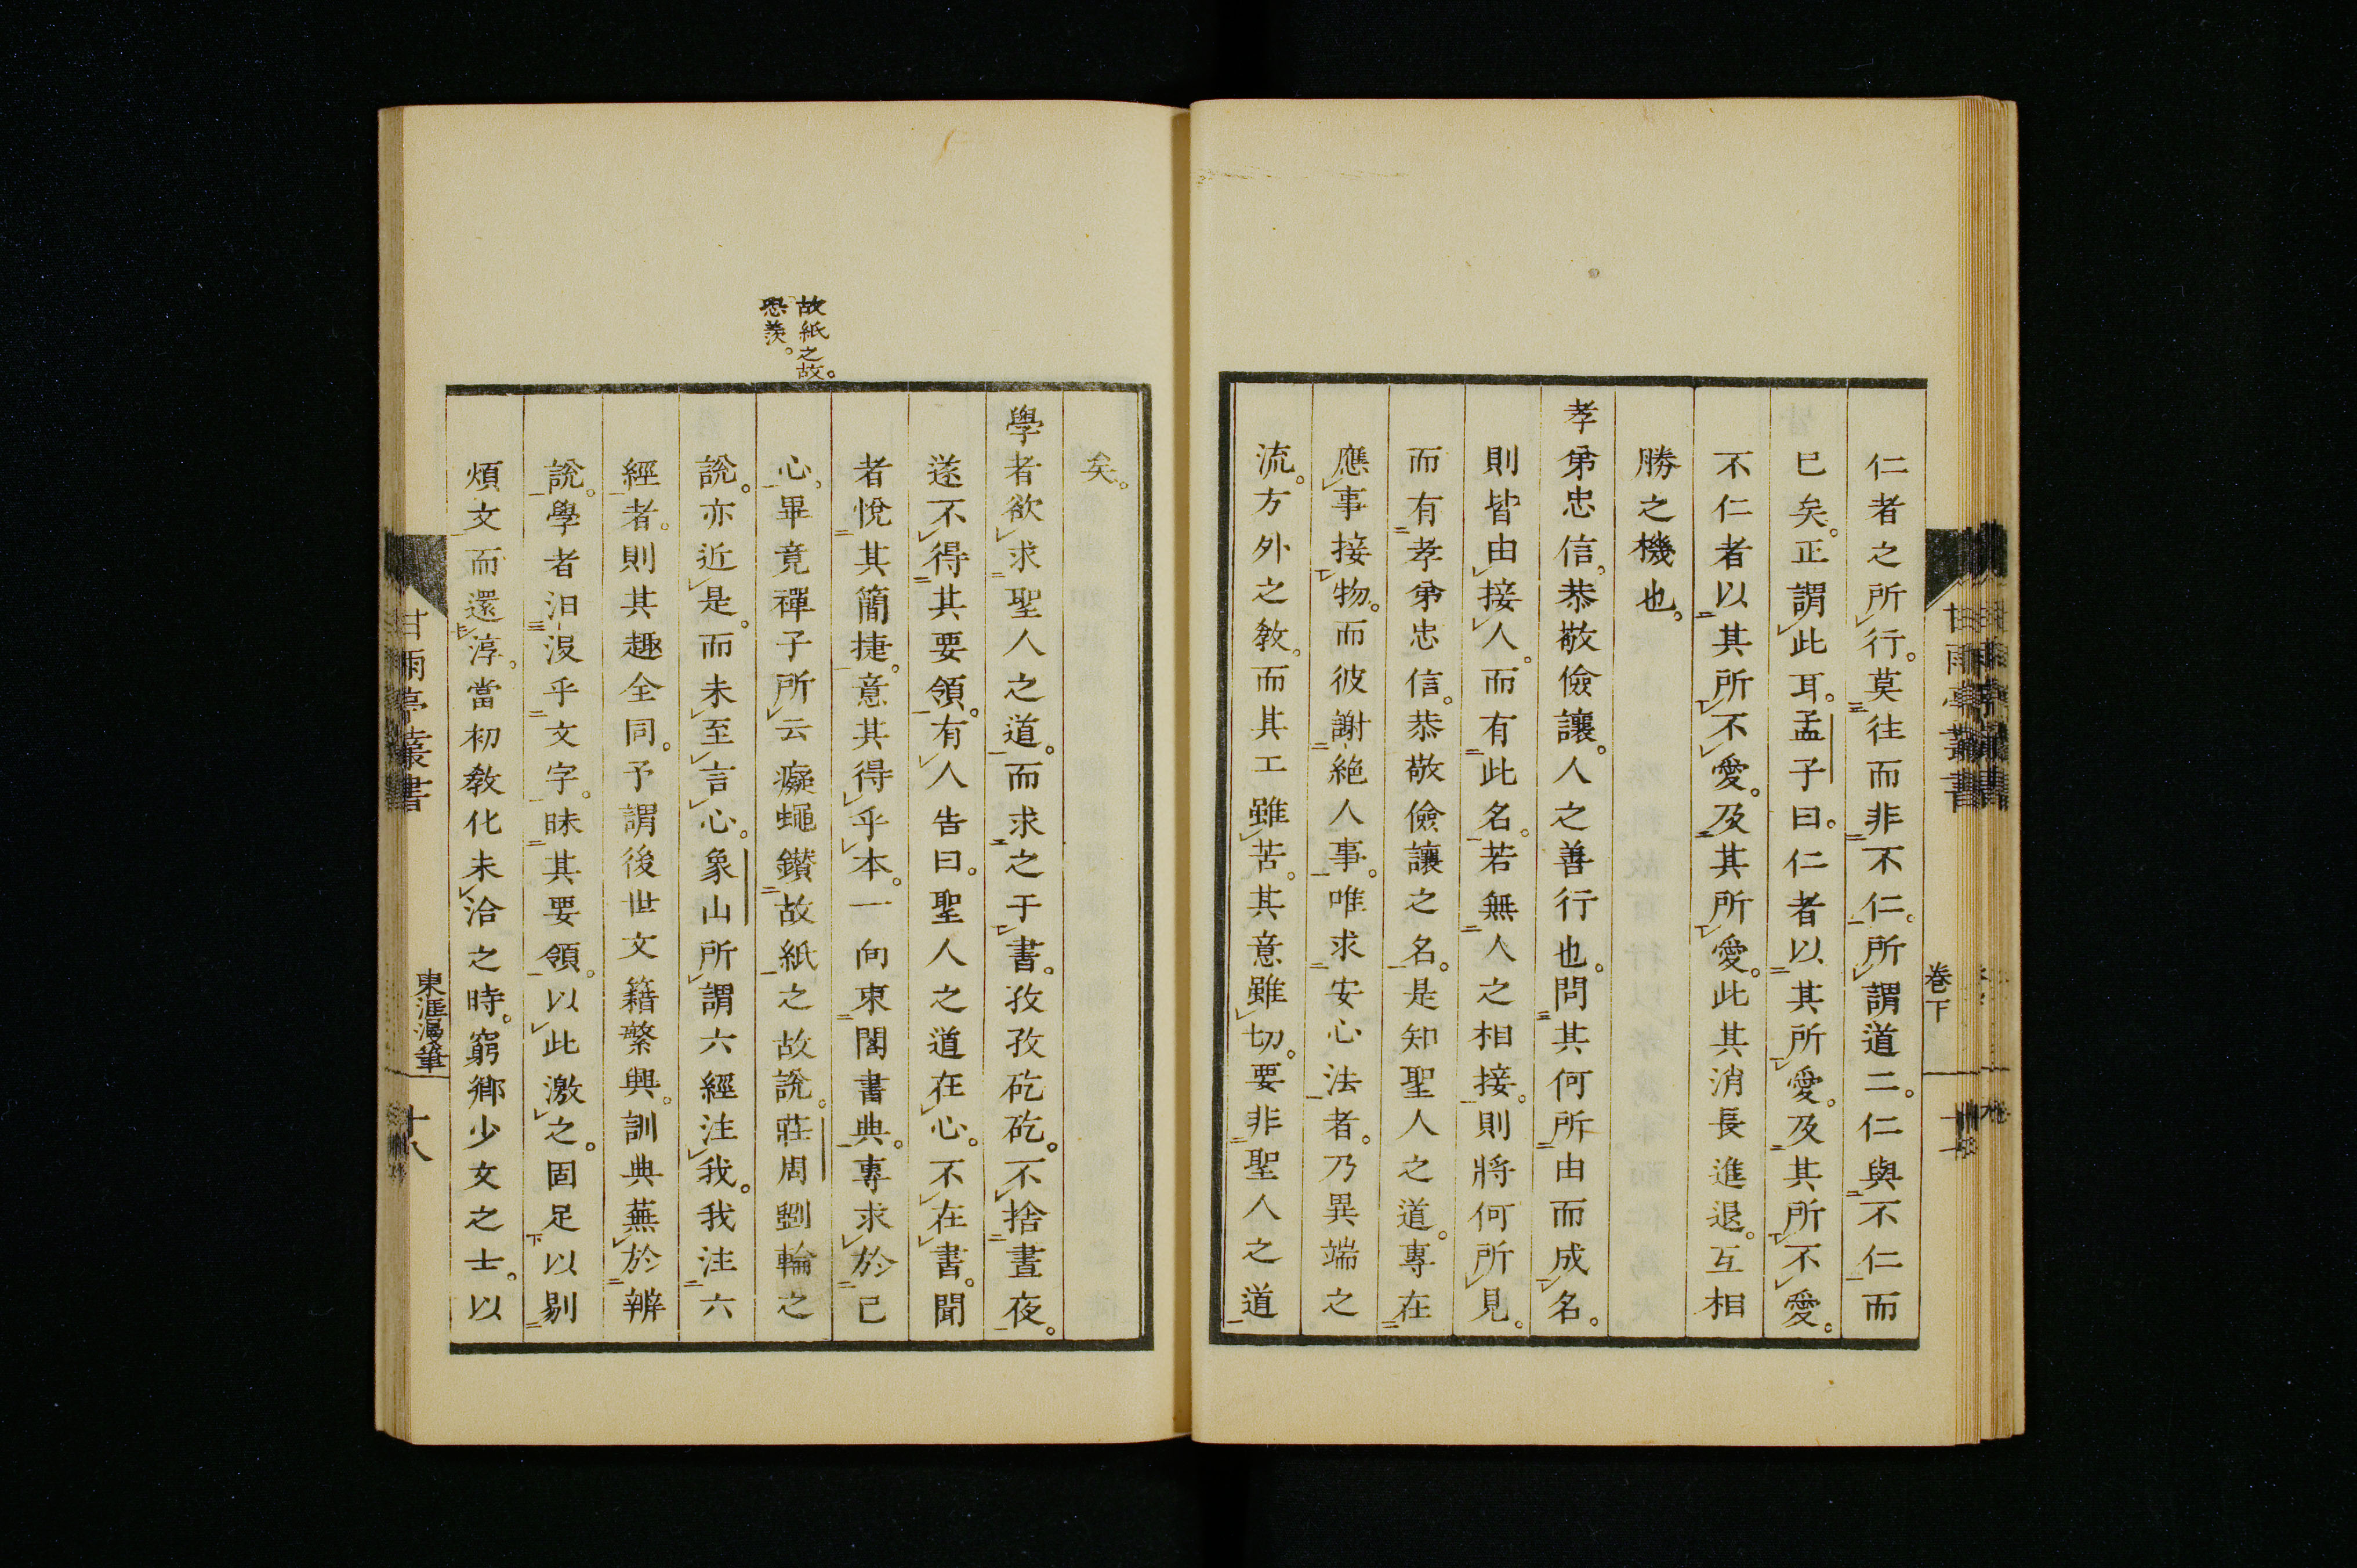 仁者之所行。莫往而非不仁。所謂道二。仁與不仁而
已矣。正謂此耳。孟子曰。仁者以其所愛。及其所不愛。
不仁者以其所不愛。及其所愛。此其消長進退。互相
勝之機也。
孝弟忠信。恭敬儉讓。人之善行也。問其何所由而成名。
則皆由接人。而有此名。若無人之相接。則將何所見。
而有孝弟忠信。恭敬儉讓之名。是知聖人之道。專在
應事接物。而彼謝絶人事。唯求安心法者。乃異端之
流。方外之敎。而其工雖苦。其意雖切。要非聖人之道
卷下
甘雨亭叢書
矣。
學者欲求聖人之道。而求之于書。孜孜矻矻。不捨晝夜。
遂不得其要領。有人告曰。聖人之道在心。不在書。聞
者悅其簡捷。意其得乎本。一向束閣書典。專求於己
心。畢竟禪子所云癡蠅鑚故紙之故說。莊周斲輪之
說。亦近是。而未至言心。象山所謂六經注我。我注六
經者。則其趣全同。予謂後世文籍繁興。訓典蕪於辨
說。學者汨沒乎文字。昧其要領。以此激之。固足以剔
煩文而還淳。當初敎化未洽之時。窮鄉少文之士。以
故紙之故。
恐羨。
甘雨亭叢書
東涯漫筆
十八